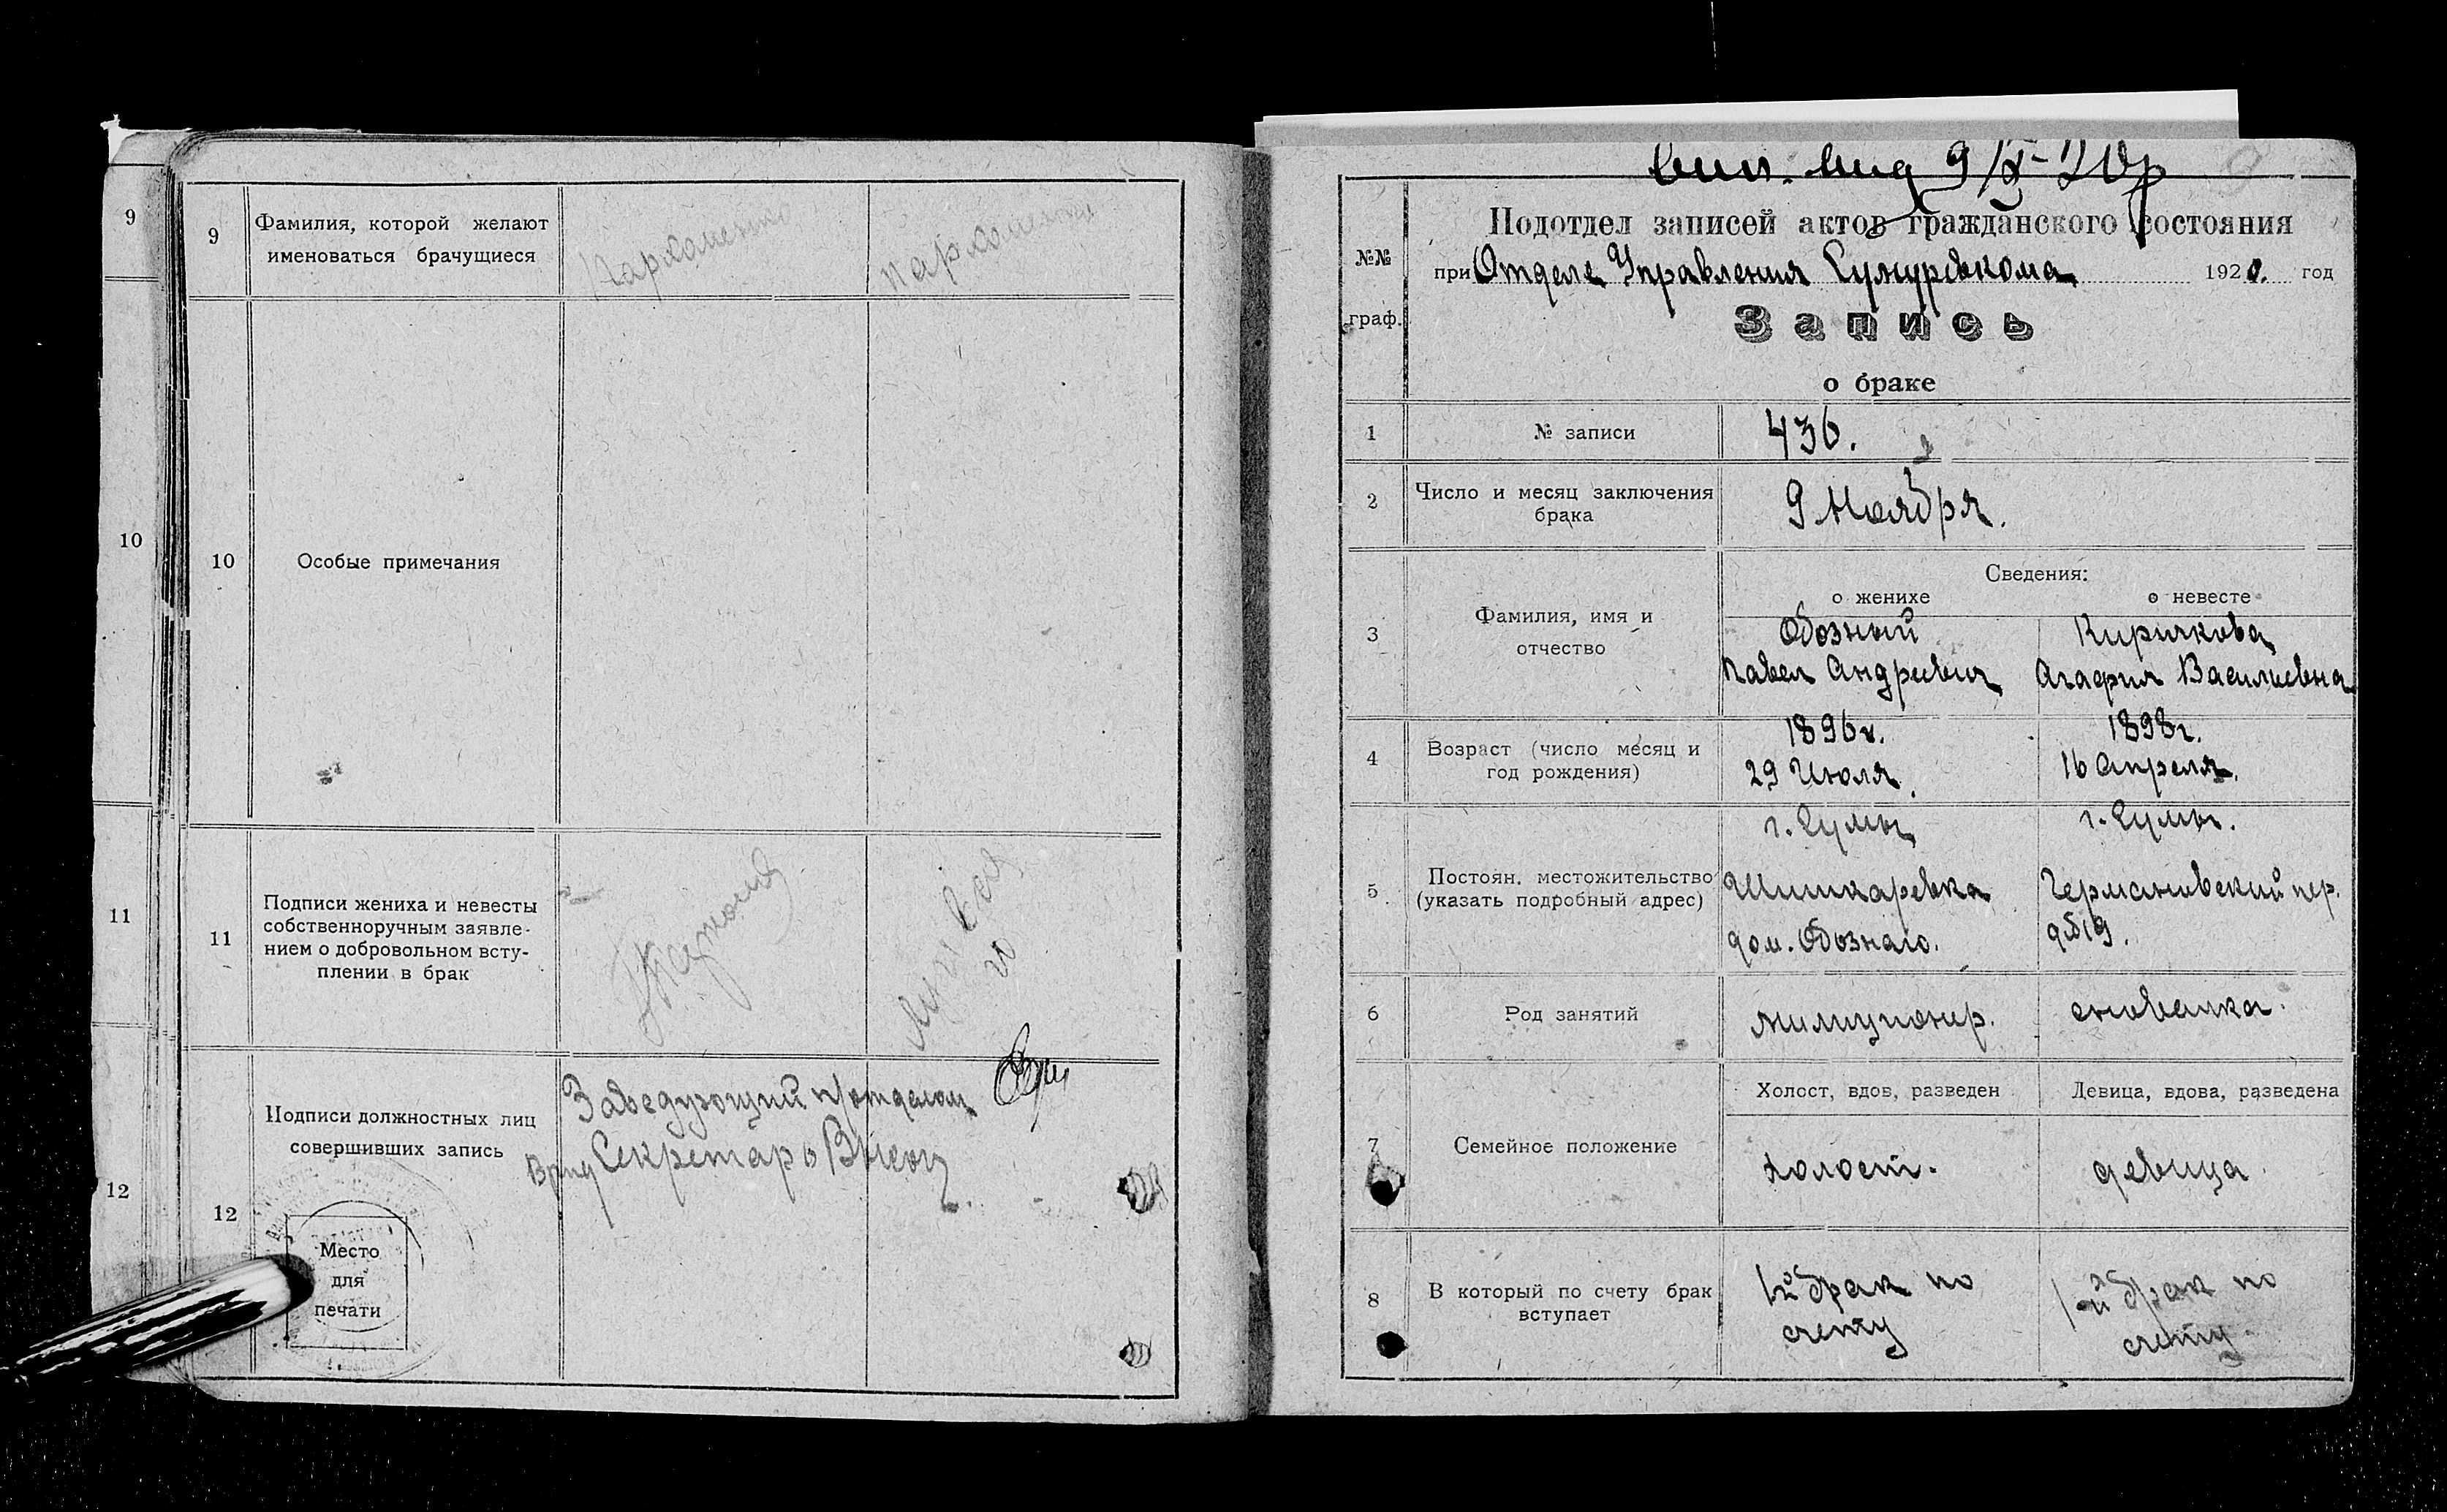 9
10
11
12
9
Фамилия, которой желают
именоваться брачущиеся
Пархоменко
Пархоменко
10
Особые примечания
11
Подписи жениха и невесты
собственноручным заявле-
нием о добровольном всту-
плении в брак
12
Подписи должностных лиц
совершивших запись
Заведующий п/отделом
Врид Секретаря
Место
для
печати
9
Подотдел записей актов гражданского состояния
№№
граф.
при Отделе Управления 1920. год
Запись
о браке
1
№ записи
436.
2
Число и месяц заключения
брака
9 Ноября.
Сведения:
о женихе
о невесте
3
Фамилия, имя и
отчество
Обозный
Павел Андреевич
Киричкова
Агафия Василиевна
4
Возраст (число месяц и
год рождения)
1896 г.
29 Июля.
1898 г.
16 Апреля.
5
Постоян. местожительство
(указать подробный адрес)
г. Сумы
Шишкаревка
дом. Обознаго.
г. Сумы.
Германовский пер.
д № 19.
6
Род занятий
милиционер.
сновалка.
7
Семейное положение
Холост, вдов, разведен
Девица, вдова, разведена
холост.
девица
8
В который по счету брак
вступает
1-й брак по
счету
1-й брак по
счету